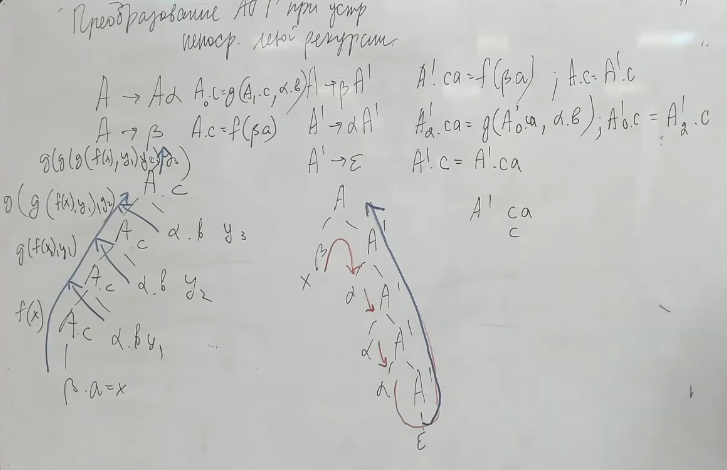 Преобразование АГ при устр
непоср. левой рекурсии.
A → Aα A₀.c=g(A₁.c, α.в)
A → β A.c=f(βa)
A → βA'
A' → αA'
A' → ε
A'.ca=f(βa) ; A.c=A'.c
A'₂.ca=g(A'₀.ca, α.в); A'₀.c = A'₂.c
A'.c = A'.ca
A' ca
c
g(g(g(f(x), y₁) y₂) y₃)
A.c
g(g(f(x),y₁),y₂)
A.c α.в y₃
g(f(x),y₁)
A.c α.в y₂
f(x)
A.c α.в y₁
β.a=x
A
β A'
x
α A'
α A'
α A'
ε